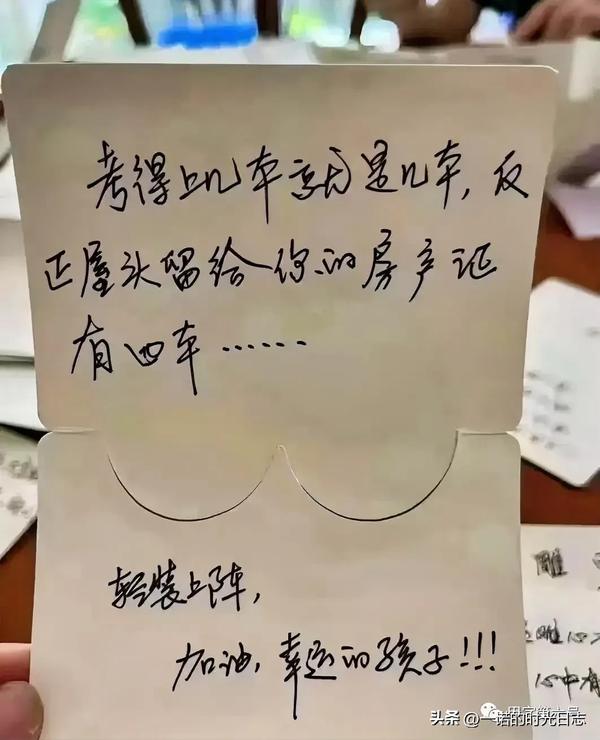 考得上几本就是几本,反
正屋头留给你的房产证
有四本……
轻装上阵,
加油,幸运的孩子!!!
雕
雕心
心中有
头条 @一诺的时光日志